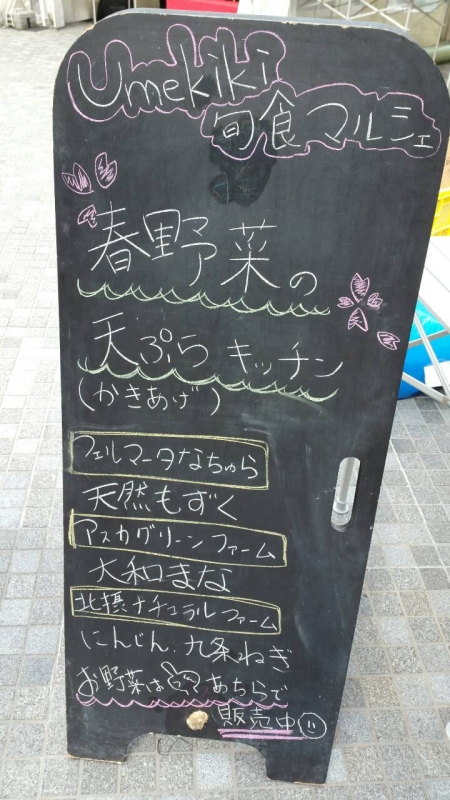 Umekiki
旬食マルシェ
春野菜の
天ぷらキッチン
(かきあげ)
フェルマータなちゅら
天然もずく
アスカグリーンファーム
大和まな
北摂ナチュラルファーム
にんじん、九条ねぎ
お野菜はあちらで
販売中